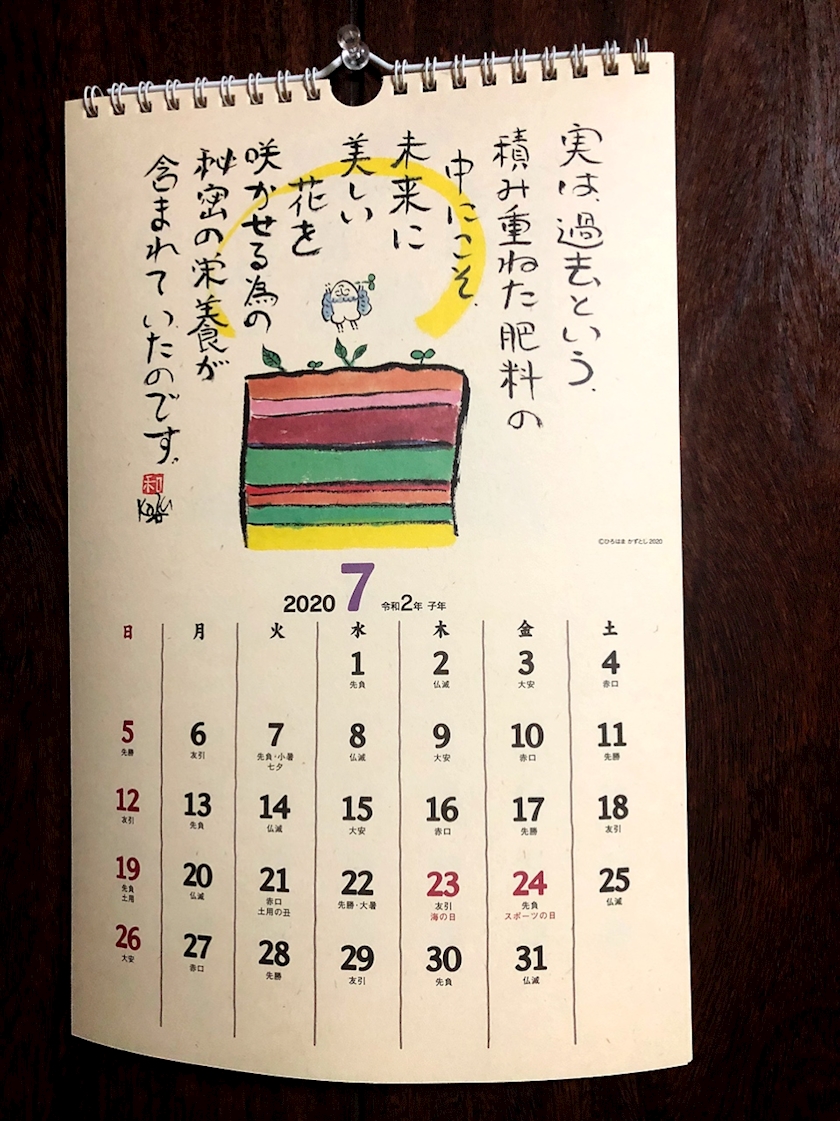 実は、過去という、
積み重ねた肥料の
中にこそ、
未来に
美しい
花を
咲かせる為の
秘密の栄養が
含まれていたのです。
和
©ひろはま かずとし 2020
2020 7 令和2年 子年
日 月 火 水 木 金 土
1 2 3 4
先負 仏滅 大安 赤口
5 6 7 8 9 10 11
先勝 友引 先負・小暑 仏滅 大安 赤口 先勝
七夕
12 13 14 15 16 17 18
友引 先負 仏滅 大安 赤口 先勝 友引
19 20 21 22 23 24 25
先負 仏滅 赤口 先勝・大暑 友引 先負 仏滅
土用 土用の丑 海の日 スポーツの日
26 27 28 29 30 31
大安 赤口 先勝 友引 先負 仏滅